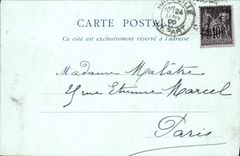 CARTE POSTALE
Ce côté est exclusivement réservé à l'adresse
Madame Malâtre
rue Etienne Marcel
Paris